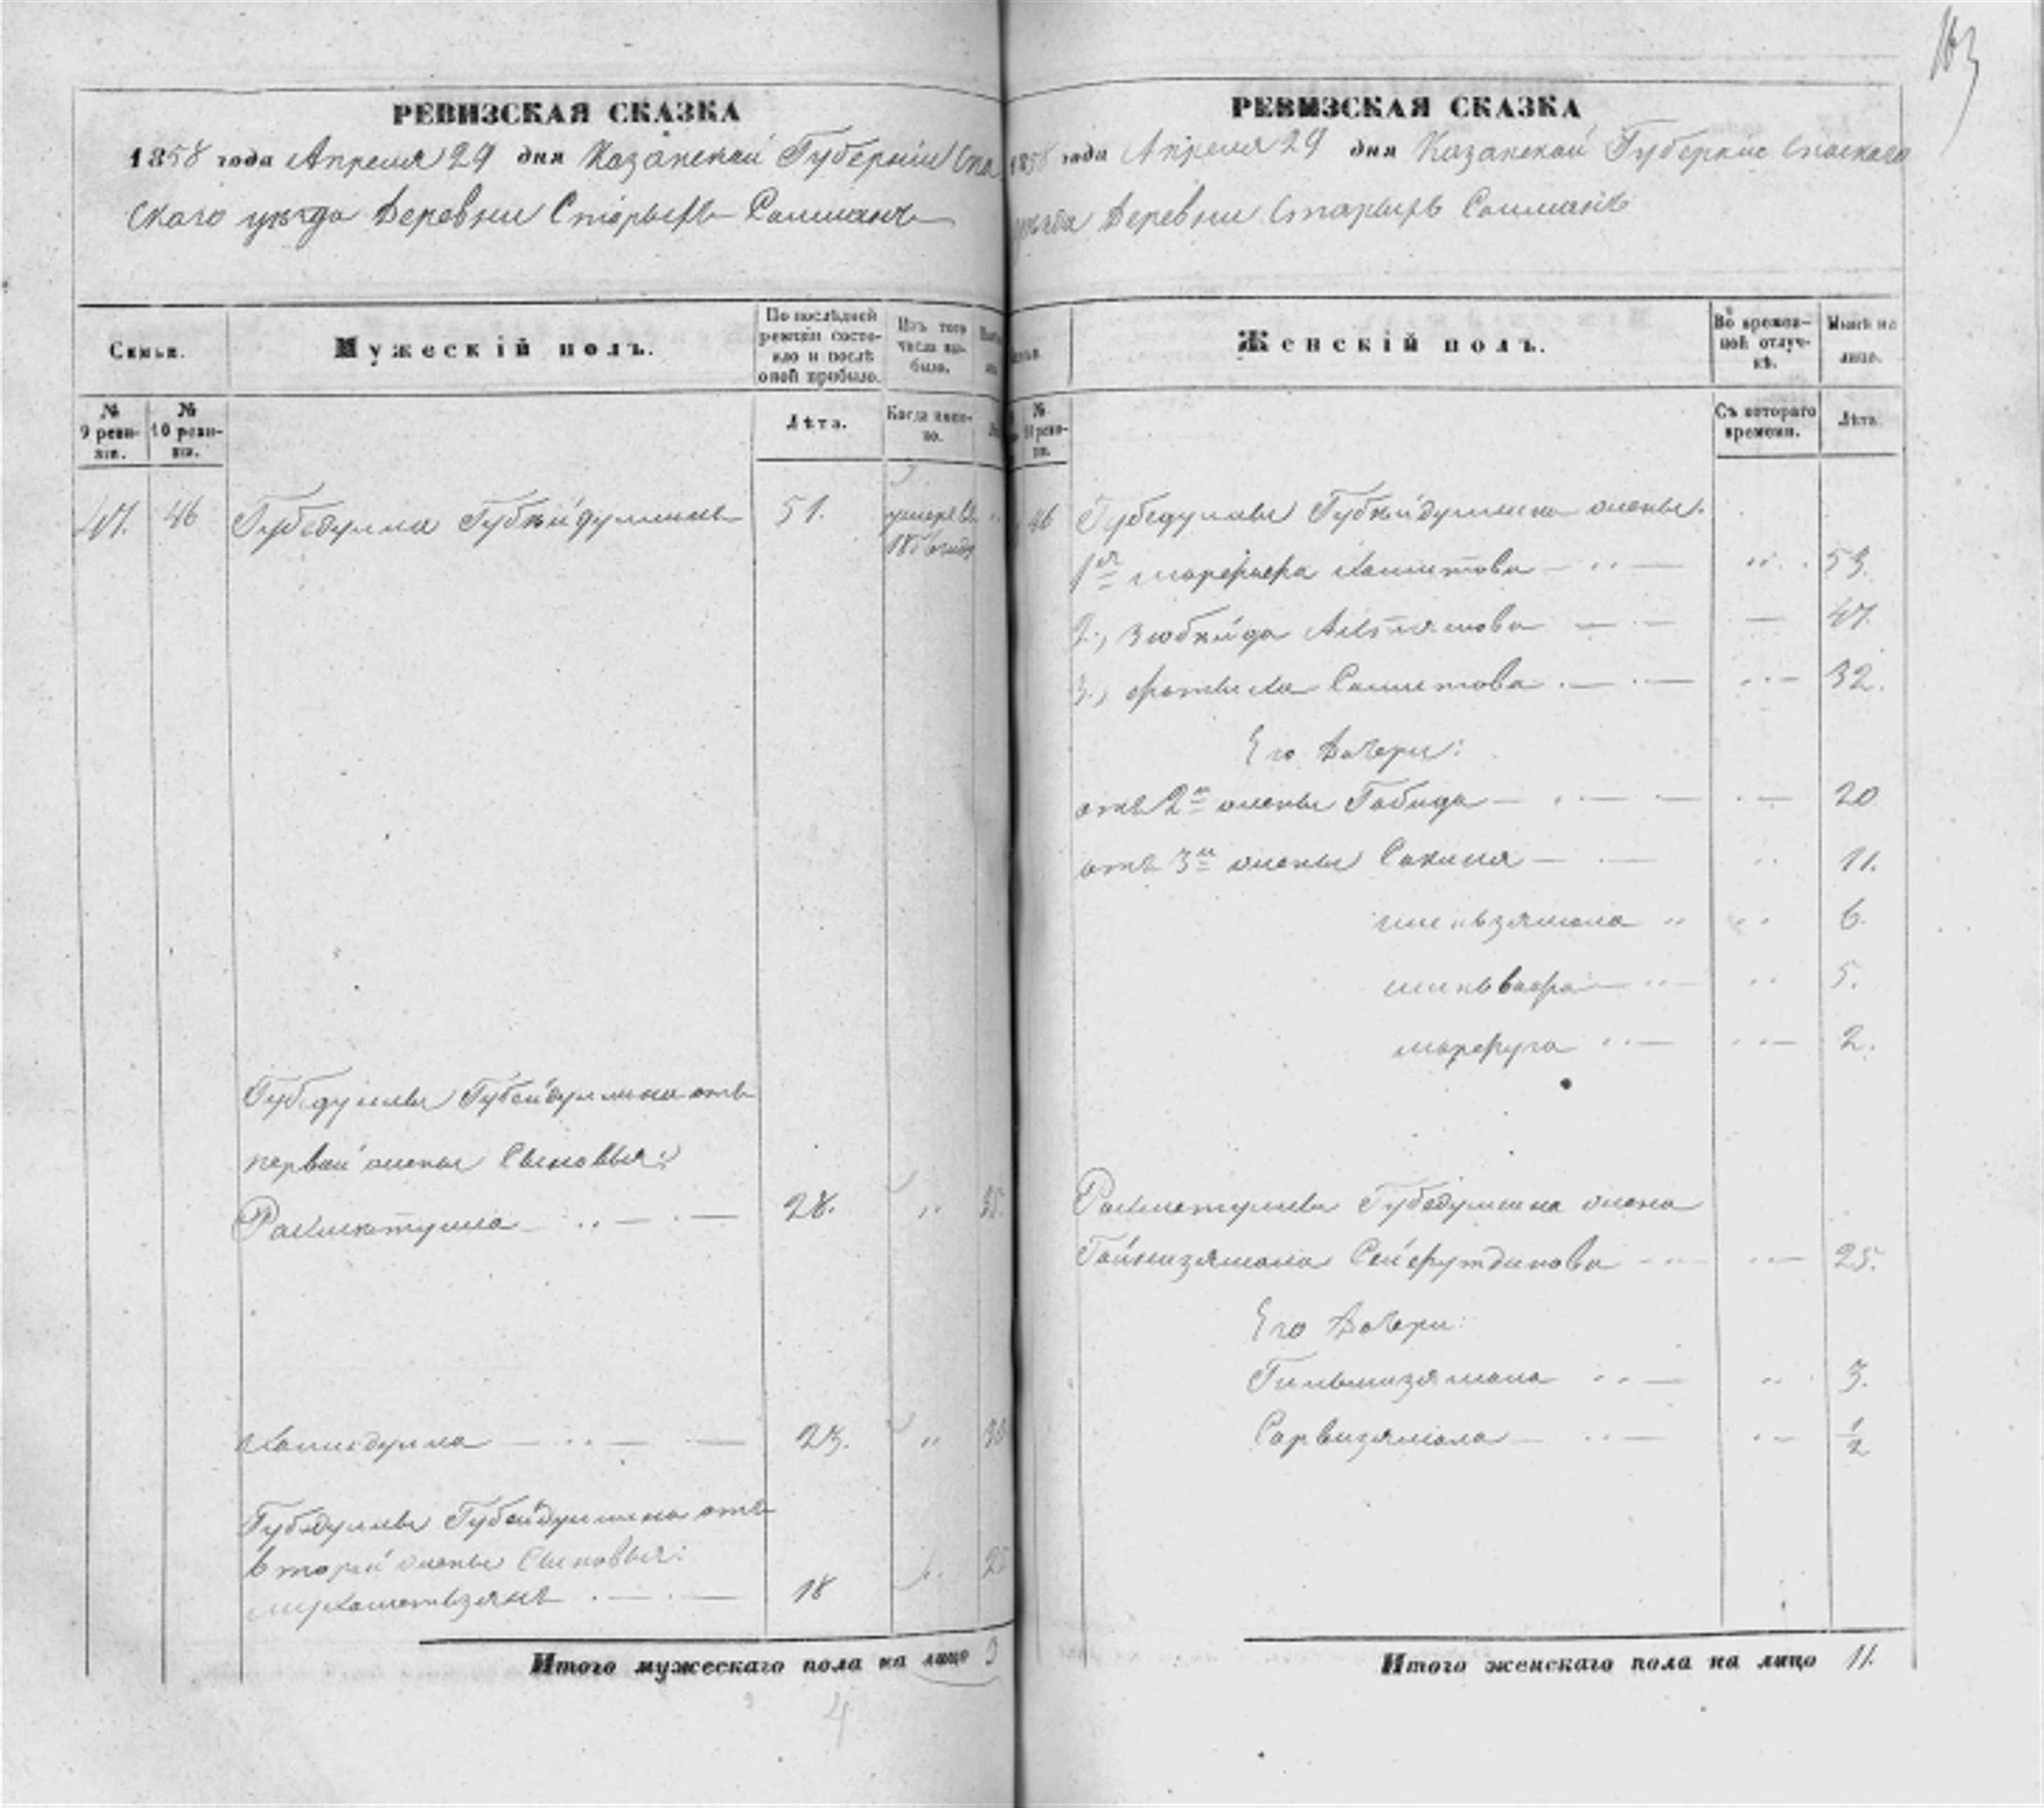 163
РЕВИЗСКАЯ СКАЗКА
1858 года Апреля 29 дня Казанской Губернии Спа
скаго уѣзда Деревни Старыхъ Салманъ
Семьи.
Мужескій полъ.
По послѣдней ревизіи состояло и послѣ оной прибыло.
Изъ того числа выбыло.
№ 9 ревизіи.
№ 10 ревизіи.
Лѣта.
Когда именно.
47. 46 Губедулла Губѣйдуллинъ 51. умеръ въ
185 году
Губедуллы Губейдуллина отъ
первой жены Сыновья:
Рахметулла 28. " 35.
Хамидулла 23. " 30
Губедуллы Губейдуллина отъ
второй жены Сыновья:
18
Итого мужескаго пола на лицо 3
4
РЕВИЗСКАЯ СКАЗКА
1858 года Апреля 29 дня Казанской Губернии Спаскаго
уѣзда Деревни Старыхъ Салманъ
Женскій полъ.
Во временной отлучкѣ.
Нынѣ на лицо.
№ 10 ревизіи.
Съ котораго времени.
Лѣта.
46 Губедуллы Губѣйдуллина жены.
1я 53.
2., Зюбѣйда 47.
3., Саметова 32.
Его Дочери:
отъ 2й жены Габида 20
отъ 3й жены Сакина 11.
6.
5.
2.
Рахметуллы Губедуллина жена
Гайнизямала Сейфутдинова 25.
Его Дочери:
Гильмизямала 3.
Сарвизямала 1/2
Итого женскаго пола на лицо 11.